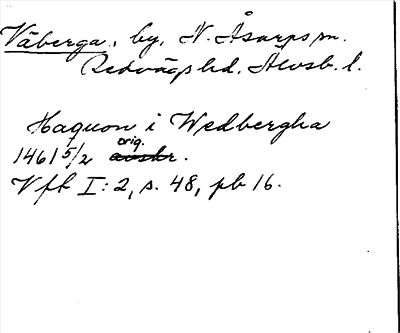 Våberga, by, N. Åsarps sn.
Redvägs hd. Älvsb. l.
Haquon i Wedbergha
orig.
1461 5/2 avskr.
Vft I:2, s. 48, pb 16.